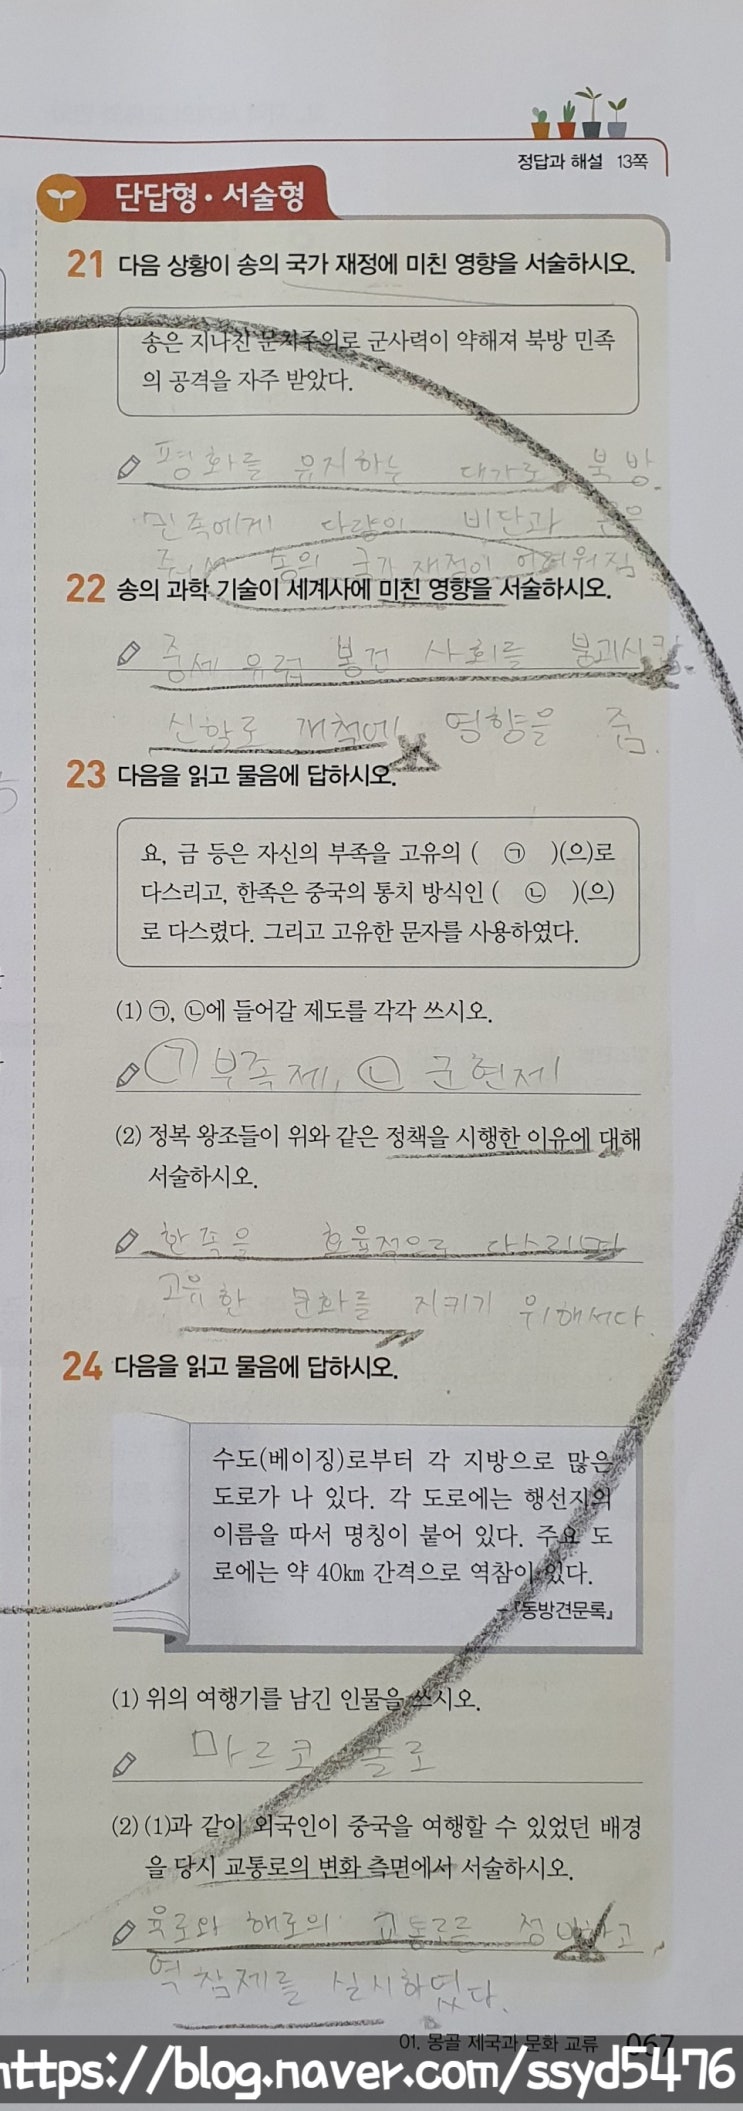 정답과 해설 13쪽
단답형·서술형
21 다음 상황이 송의 국가 재정에 미친 영향을 서술하시오.
송은 지나친 문치주의로 군사력이 약해져 북방 민족
의 공격을 자주 받았다.
평화를 유지하는 대가로 북방
민족에게 다량의 비단과 은을
송의 국가 재정이 어려워짐
22 송의 과학 기술이 세계사에 미친 영향을 서술하시오.
중세 유럽 봉건 사회를 붕괴시킴.
신항로 개척에 영향을 줌.
23 다음을 읽고 물음에 답하시오.
요, 금 등은 자신의 부족을 고유의 ( ㉠ )(으)로
다스리고, 한족은 중국의 통치 방식인 ( ㉡ )(으)
로 다스렸다. 그리고 고유한 문자를 사용하였다.
(1) ㉠, ㉡에 들어갈 제도를 각각 쓰시오.
㉠ 부족제, ㉡ 군현제
(2) 정복 왕조들이 위와 같은 정책을 시행한 이유에 대해
서술하시오.
한족을 효율적으로 다스리면
고유한 문화를 지키기 위해서다.
24 다음을 읽고 물음에 답하시오.
수도(베이징)로부터 각 지방으로 많은
도로가 나 있다. 각 도로에는 행선지의
이름을 따서 명칭이 붙어 있다. 주요 도
로에는 약 40km 간격으로 역참이 있다.
-『동방견문록』
(1) 위의 여행기를 남긴 인물을 쓰시오.
마르코 폴로
(2) (1)과 같이 외국인이 중국을 여행할 수 있었던 배경
을 당시 교통로의 변화 측면에서 서술하시오.
육로와 해로의 교통로를 정비하고,
역참제를 실시하였다.
01. 몽골 제국과 문화 교류 067
https://blog.naver.com/ssyd5476